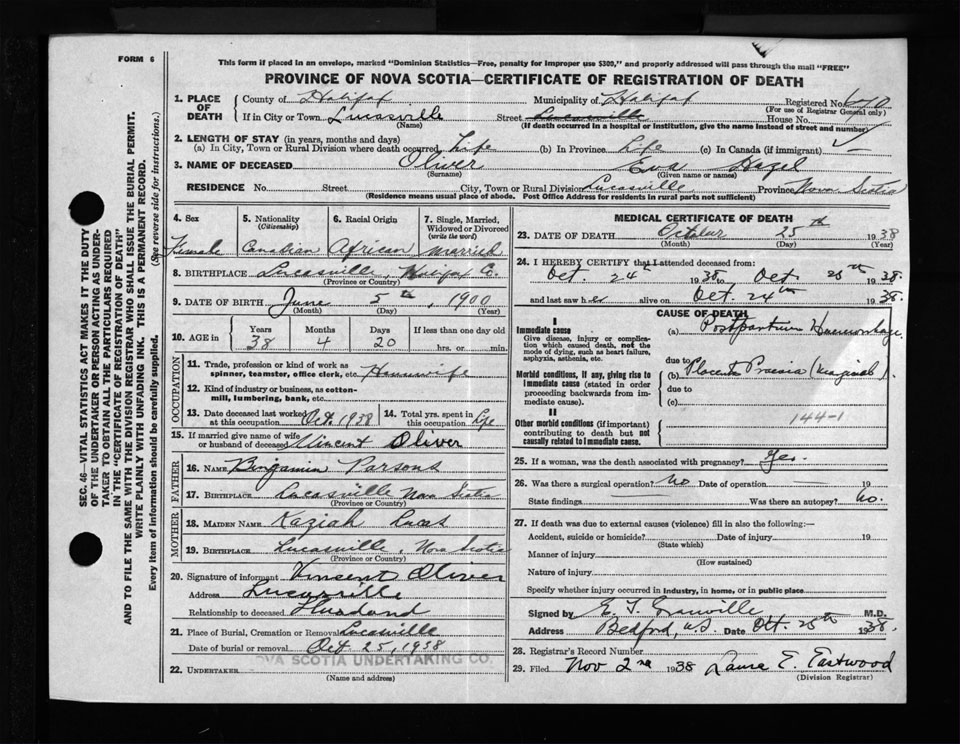 FORM 6
This form if placed in an envelope, marked "Dominion Statistics—Free, penalty for improper use $300," and properly addressed will pass through the mail "FREE"
PROVINCE OF NOVA SCOTIA—CERTIFICATE OF REGISTRATION OF DEATH
SEC. 46—VITAL STATISTICS ACT MAKES IT THE DUTY
OF THE UNDERTAKER OR PERSON ACTING AS UNDER-
TAKER TO OBTAIN ALL THE PARTICULARS REQUIRED
IN THE "CERTIFICATE OF REGISTRATION OF DEATH"
AND TO FILE THE SAME WITH THE DIVISION REGISTRAR WHO SHALL ISSUE THE BURIAL PERMIT.
WRITE PLAINLY WITH UNFADING INK. THIS IS A PERMANENT RECORD.
Every item of information should be carefully supplied. (See reverse side for instructions.)
1. PLACE OF DEATH
County of Halifax Municipality of Halifax Registered No. 670
(For use of Registrar General only)
If in City or Town Lucasville Street Lucasville House No.
(Name) (If death occurred in a hospital or institution, give the name instead of street and number)
2. LENGTH OF STAY (in years, months and days)
(a) In City, Town or Rural Division where death occurred Life (b) In Province Life (c) In Canada (if immigrant)
3. NAME OF DECEASED Oliver Eva Hazel
(Surname) (Given name or names)
RESIDENCE No. Street City, Town or Rural Division Lucasville Province Nova Scotia
(Residence means usual place of abode. Post Office Address for residents in rural parts not sufficient)
4. Sex
Female
5. Nationality
(Citizenship)
Canadian
6. Racial Origin
African
7. Single, Married,
Widowed or Divorced
(write the word)
Married
8. BIRTHPLACE Lucasville, Halifax Co.
(Province or Country)
9. DATE OF BIRTH June 5th, 1900
(Month) (Day) (Year)
10. AGE in
Years Months Days If less than one day old
38 4 20 hrs. or min.
OCCUPATION
11. Trade, profession or kind of work as
spinner, teamster, office clerk, etc. Housewife
12. Kind of industry or business, as cotton-
mill, lumbering, bank, etc.
13. Date deceased last worked
at this occupation Oct. 1938
14. Total yrs. spent in
this occupation Life
15. If married give name of wife
or husband of deceased Vincent Oliver
FATHER
16. NAME Benjamin Parsons
17. BIRTHPLACE Lucasville Nova Scotia
(Province or Country)
MOTHER
18. MAIDEN NAME Kaziah Lucas
19. BIRTHPLACE Lucasville, Nova Scotia
(Province or Country)
20. Signature of informant Vincent Oliver
Address Lucasville
Relationship to deceased Husband
21. Place of Burial, Cremation or Removal Lucasville
Date of burial or removal Oct 25, 1938
22. UNDERTAKER NOVA SCOTIA UNDERTAKING CO.
(Name and address)
MEDICAL CERTIFICATE OF DEATH
23. DATE OF DEATH October 25th 1938
(Month) (Day) (Year)
24. I HEREBY CERTIFY that I attended deceased from:
Oct. 24th 1938 to Oct. 25th 1938
and last saw her alive on Oct. 24th 1938.
CAUSE OF DEATH
I
Immediate cause
Give disease, injury or complica-
tion which caused death, not the
mode of dying, such as heart failure,
asphyxia, asthenia, etc.
(a) Postpartum Haemorrhage
due to
Morbid conditions, if any, giving rise to
immediate cause (stated in order
proceeding backwards from im-
mediate cause).
(b) Placenta Praevia (Marginal).
due to
(c)
II
144-1
Other morbid conditions (if important)
contributing to death but not
causally related to immediate cause.
25. If a woman, was the death associated with pregnancy? Yes.
26. Was there a surgical operation? No Date of operation 19
State findings Was there an autopsy? No.
27. If death was due to external causes (violence) fill in also the following:—
Accident, suicide or homicide? Date of injury 19
(State which)
Manner of injury
(How sustained)
Nature of injury
Specify whether injury occurred in industry, in home, or in public place
Signed by E. T. Granville M.D.
Address Bedford, N.S. Date Oct. 25th 1938.
28. Registrar's Record Number
29. Filed Nov 2nd 1938 Laura E. Eastwood
(Division Registrar)